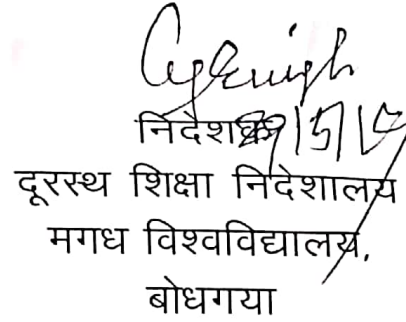 निदेशक
दूरस्थ शिक्षा निदेशालय
मगध विश्वविद्यालय,
बोधगया